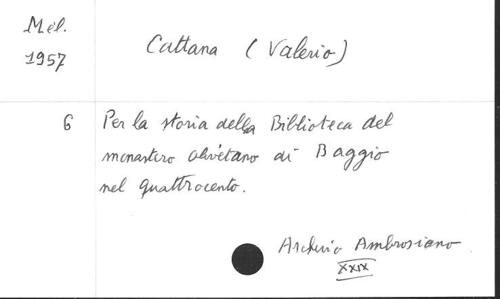 Mél.
1957
Cattana (Valerio)
6 Per la storia della Biblioteca del
monastero olivetano di Baggio
nel quattrocento.
Archivio Ambrosiano
XXIX